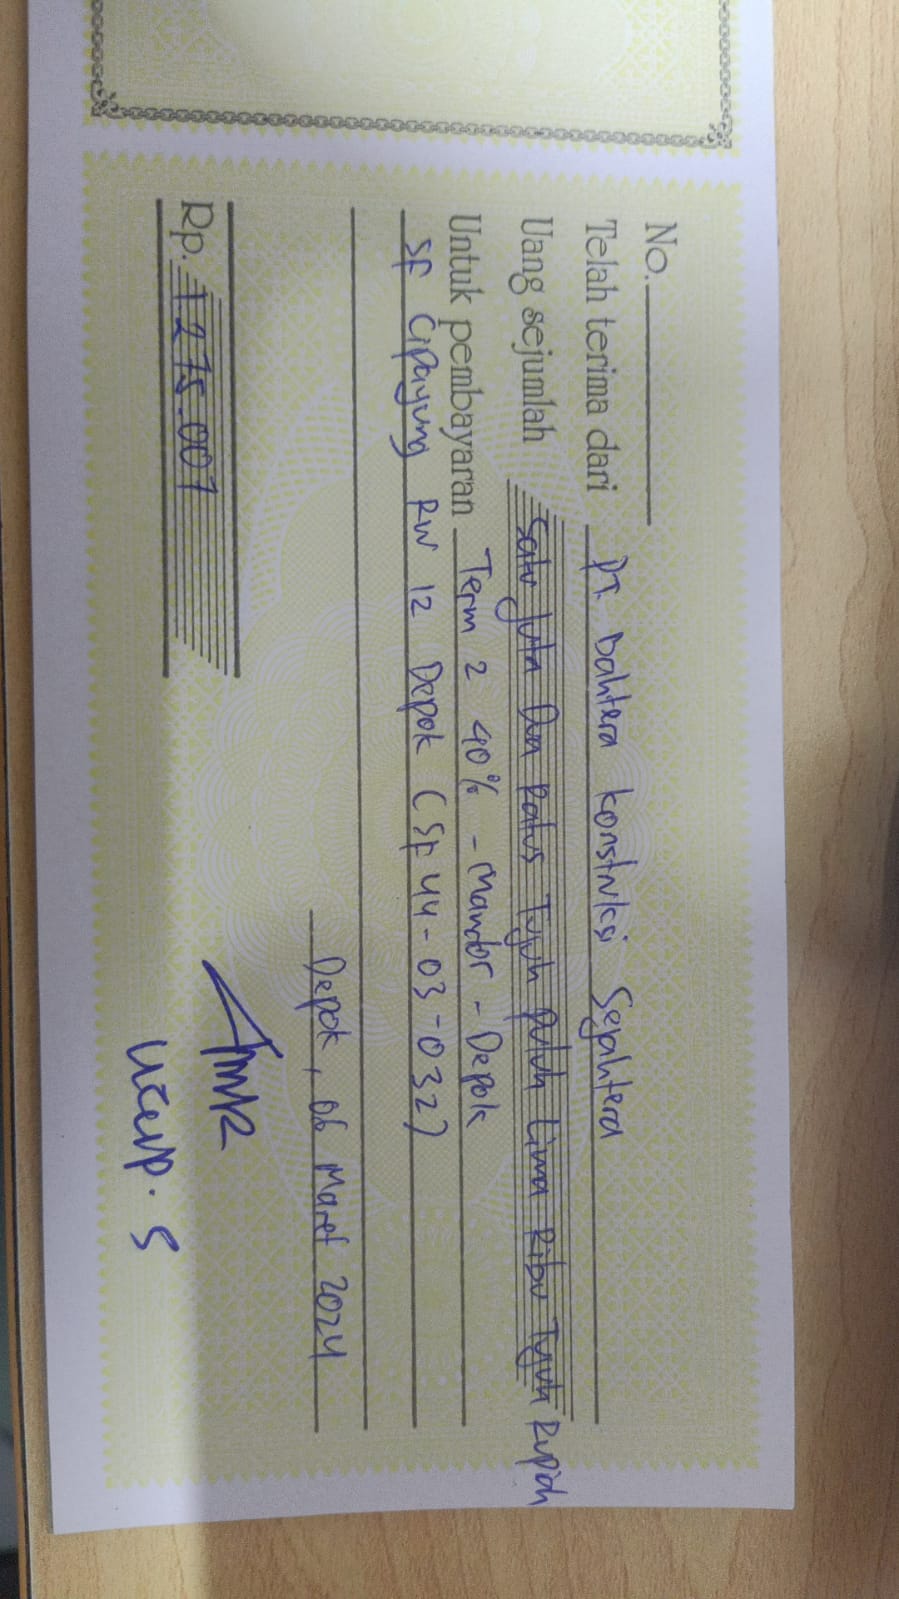 No.
Telah terima dari PT. Bahtera konstruksi Sejahtera
Uang sejumlah Satu juta Dua Ratus Tujuh puluh Lima Ribu Tujuh Rupiah
Untuk pembayaran Term 2 40% - Mandor - Depok
SF Cipayung RW 12 Depok (SF 44-03-032)
Depok, 06 Maret 2024
Rp. 1.275.007
Ucup. S